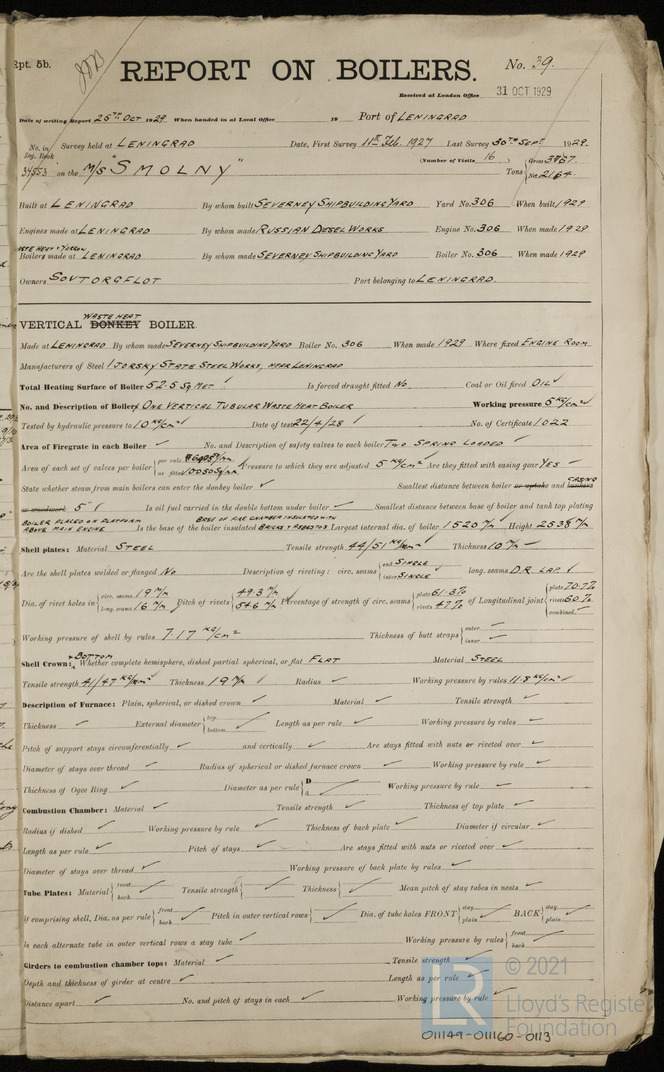 Rpt. 5b.
REPORT ON BOILERS.
No. 39.
Received at London Office 31 OCT 1929
Date of writing Report 25TH OCT 1929. When handed in at Local Office 19 Port of LENINGRAD
No. in Reg. Book Survey held at LENINGRAD Date, First Survey 11th Feb. 1927 Last Survey 30TH SEPT 1929.
34553 on the M/S "SMOLNY" (Number of Visits 16 ) Tons { Gross 3867. Net 2164.
Built at LENINGRAD By whom built SEVERNEY SHIPBUILDING YARD Yard No. 306 When built 1929
Engines made at LENINGRAD By whom made RUSSIAN DIESEL WORKS Engine No. 306 When made 1929
Boilers made at LENINGRAD By whom made SEVERNEY SHIPBUILDING YARD Boiler No. 306 When made 1929
Owners SOVTORGFLOT Port belonging to LENINGRAD.
VERTICAL WASTE HEAT DONKEY BOILER.
Made at LENINGRAD By whom made SEVERNEY SHIPBUILDING YARD Boiler No. 306 When made 1929 Where fixed ENGINE ROOM
Manufacturers of Steel IJORSKY STATE STEEL WORKS, NEAR LENINGRAD
Total Heating Surface of Boiler 52.5 SQ MET Is forced draught fitted NO Coal or Oil fired OIL
No. and Description of Boilers ONE VERTICAL TUBULAR WASTE HEAT BOILER Working pressure 5 KG/cm²
Tested by hydraulic pressure to 10 KG/cm² Date of test 22/4/28 No. of Certificate 1022
Area of Firegrate in each Boiler No. and Description of safety valves to each boiler TWO SPRING LOADED
Area of each set of valves per boiler { per rule as fitted Pressure to which they are adjusted 5 KG/cm² Are they fitted with easing gear YES
State whether steam from main boilers can enter the donkey boiler Smallest distance between boiler or uptake and bunkers CASING
or woodwork 5" Is oil fuel carried in the double bottom under boiler Smallest distance between base of boiler and tank top plating
BOILER PLACED ON PLATFORM ABOVE MAIN ENGINE Is the base of the boiler insulated BASE OF FIRE CHAMBER INSULATED WITH BRICKS & ASBESTOS Largest internal dia. of boiler 1520 m/m Height 2538 m/m
Shell plates: Material STEEL Tensile strength 44/51 KG/mm² Thickness 10 m/m
Are the shell plates welded or flanged NO Description of riveting: circ. seams { end SINGLE inter SINGLE long. seams D.R. LAP.
Dia. of rivet holes in { circ. seams 19 m/m long. seams 16 m/m Pitch of rivets { 49.3 m/m 54.6 m/m Percentage of strength of circ. seams { plate 61.3% rivets 47% of Longitudinal joint { plate 70.7% rivets 60% combined
Working pressure of shell by rules 7.17 KG/cm² Thickness of butt straps { outer inner
Shell Crown: & BOTTOM Whether complete hemisphere, dished partial spherical, or flat FLAT Material STEEL
Tensile strength 41/47 KG/mm² Thickness 19 m/m Radius Working pressure by rules 11.8 KG/cm²
Description of Furnace: Plain, spherical, or dished crown Material Tensile strength
Thickness External diameter { top bottom Length as per rule Working pressure by rules
Pitch of support stays circumferentially and vertically Are stays fitted with nuts or riveted over
Diameter of stays over thread Radius of spherical or dished furnace crown Working pressure by rule
Thickness of Ogee Ring Diameter as per rule { D d Working pressure by rule
Combustion Chamber: Material Tensile strength Thickness of top plate
Radius if dished Working pressure by rule Thickness of back plate Diameter if circular
Length as per rule Pitch of stays Are stays fitted with nuts or riveted over
Diameter of stays over thread Working pressure of back plate by rules
Tube Plates: Material { front back Tensile strength { Thickness { Mean pitch of stay tubes in nests
If comprising shell, Dia. as per rule { front back Pitch in outer vertical rows { Dia. of tube holes FRONT { stay plain BACK { stay plain
Is each alternate tube in outer vertical rows a stay tube Working pressure by rules { front back
Girders to combustion chamber tops: Material Tensile strength
Depth and thickness of girder at centre Length as per rule
Distance apart No. and pitch of stays in each Working pressure by rule
LR © 2021
Lloyd's Register
Foundation
011149-011160-0113